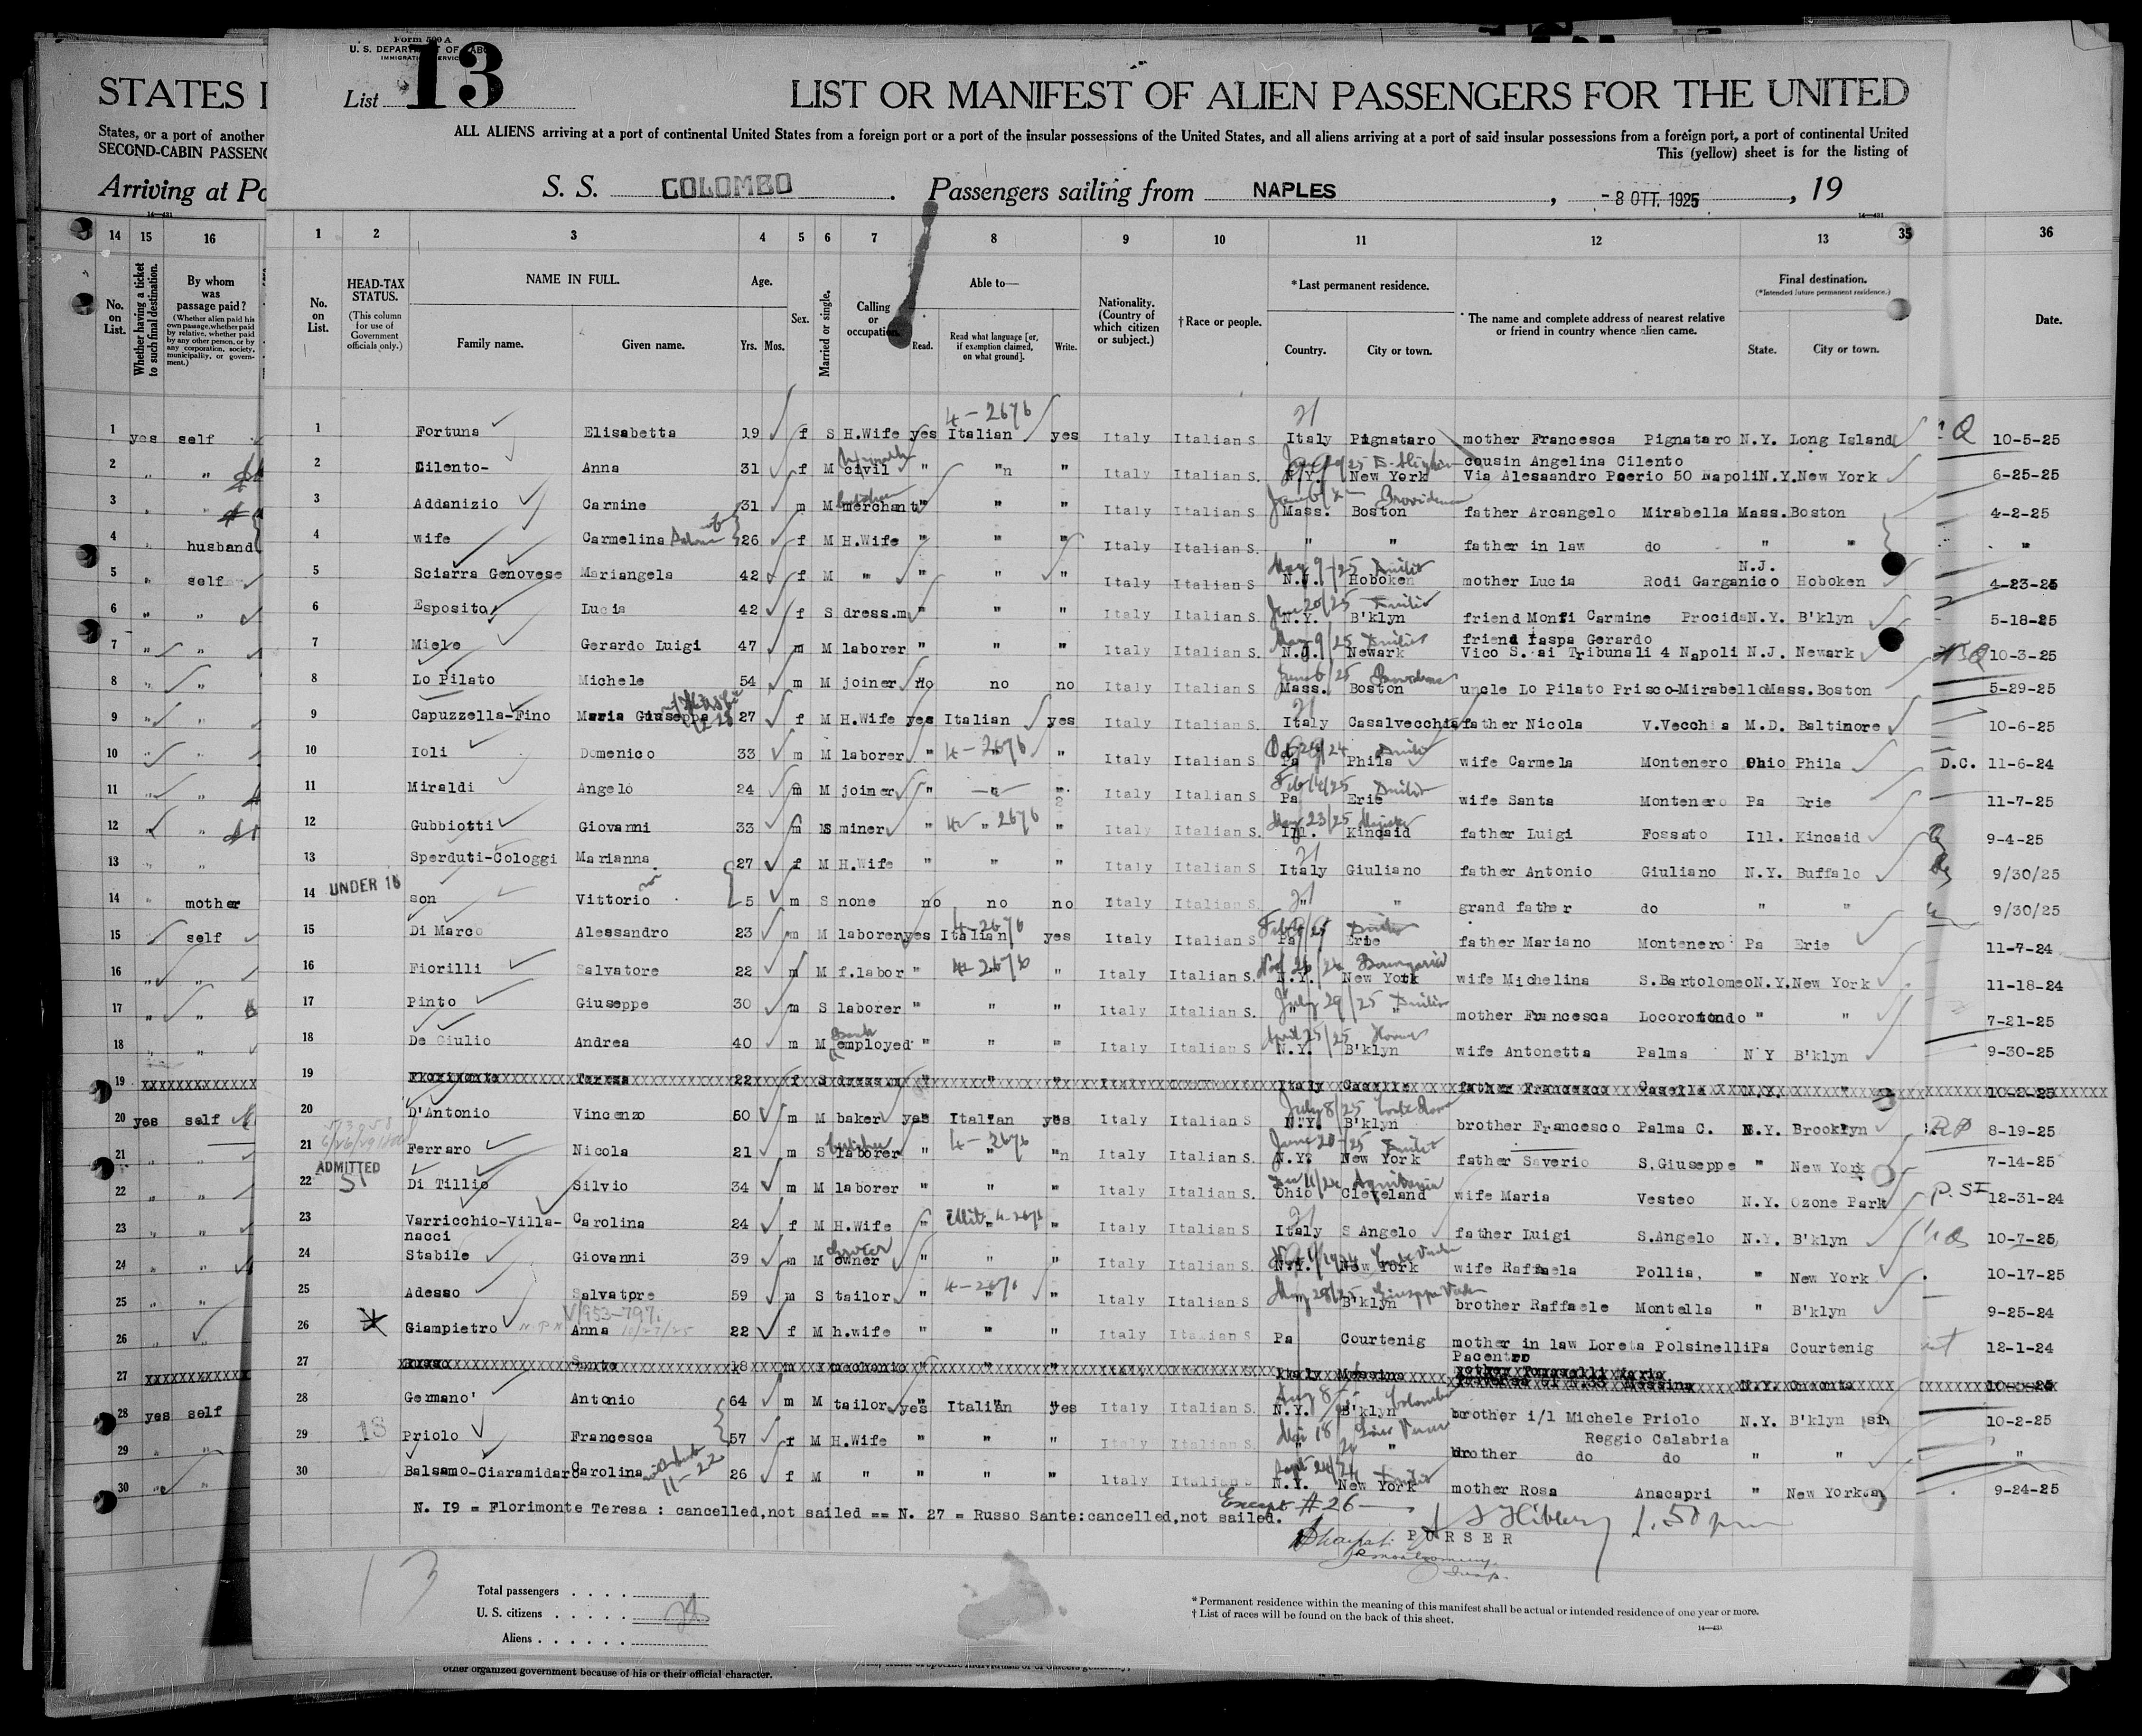 Form 500 A
U. S. DEPARTMENT OF LABOR
IMMIGRATION SERVICE
List 13
STATES I
LIST OR MANIFEST OF ALIEN PASSENGERS FOR THE UNITED
States, or a port of another
ALL ALIENS arriving at a port of continental United States from a foreign port or a port of the insular possessions of the United States, and all aliens arriving at a port of said insular possessions from a foreign port, a port of continental United
SECOND-CABIN PASSENG
This (yellow) sheet is for the listing of
Arriving at Po
S. S. COLOMBO. Passengers sailing from NAPLES, -8 OTT. 1925, 19
14—431
14 15 16 1 2 3 4 5 6 7 8 9 10 11 12 13 35 36
No. on List.
Whether having a ticket to such final destination.
By whom was passage paid?
(Whether alien paid his own passage, whether paid by relative, whether paid by any other person, or by any corporation, society, municipality, or government.)
No. on List.
HEAD-TAX STATUS.
(This column for use of Government officials only.)
NAME IN FULL.
Family name. Given name.
Age.
Yrs. Mos.
Sex.
Married or single.
Calling or occupation.
Able to—
Read. Read what language [or, if exemption claimed, on what ground]. Write.
Nationality. (Country of which citizen or subject.)
†Race or people.
*Last permanent residence.
Country. City or town.
The name and complete address of nearest relative or friend in country whence alien came.
Final destination.
(*Intended future permanent residence.)
State. City or town.
Date.
4-2676 21
1 yes self 1 Fortuna Elisabetta 19 f S H.Wife yes Italian yes Italy Italian S Italy Pignataro mother Francesca Pignataro N.Y. Long Island 10-5-25
cousin Angelina Cilento
2 " " 2 Cilento- Anna 31 f M civil " "n " Italy Italian S. N.Y. New York Via Alessandro Poerio 50 Napoli N.Y. New York 6-25-25
3 " " 3 Addanizio Carmine 31 m M merchant " " " Italy Italian S Mass. Boston father Arcangelo Mirabella Mass. Boston 4-2-25
4 " husband 4 wife Carmelina 26 f M H.Wife " " " Italy Italian S. " " father in law do " " "
May 9-25 Duilio N.J.
5 " self 5 Sciarra Genovese Mariangela 42 f M " " " " Italy Italian S. N.J. Hoboken mother Lucia Rodi Garganico Hoboken 4-23-25
June 20/25 Duilio
6 " " 6 Esposito Lucia 42 f S dress.m " " " Italy Italian S. N.Y. B'klyn friend Monfi Carmine Procida N.Y. B'klyn 5-18-25
May 9/25 Duilio friend Raspa Gerardo
7 " " 7 Miele Gerardo Luigi 47 m M laborer " " " Italy Italian S. N.J. Newark Vico S. ai Tribunali 4 Napoli N.J. Newark 10-3-25
8 " " 8 Lo Pilato Michele 54 m M joiner no no no Italy Italian S. Mass. Boston uncle Lo Pilato Prisco-Mirabella Mass. Boston 5-29-25
21
9 " " 9 Capuzzella-Fino Maria Giuseppa 27 f M H.Wife yes Italian yes Italy Italian S. Italy Casalvecchia father Nicola V.Vecchia M.D. Baltimore 10-6-25
10 " " 10 Ioli Domenico 33 m M laborer " 4-2676 " Italy Italian S Pa Phila wife Carmela Montenero Ohio Phila D.C. 11-6-24
Feb 14/25 Duilio
11 " " 11 Miraldi Angelo 24 m M joiner " " " Italy Italian S Pa Erie wife Santa Montenero Pa Erie 11-7-25
May 23/25
12 " " 12 Gubbiotti Giovanni 33 m S miner " " 2676 " Italy Italian S Ill. Kincaid father Luigi Fossato Ill. Kincaid 9-4-25
21
13 " " 13 Sperduti-Cologgi Marianna 27 f M H.Wife " " " Italy Italian S Italy Giuliano father Antonio Giuliano N.Y. Buffalo 9/30/25
UNDER 16
14 " mother 14 son Vittorio 5 m S none no no no Italy Italian S. " " grand father do " " 9/30/25
4-2676
15 self 15 Di Marco Alessandro 23 m M laborer yes Italian yes Italy Italian S Pa Erie father Mariano Montenero Pa Erie 11-7-24
16 " " 16 Fiorilli Salvatore 22 m M f.labor " 4-2676 " Italy Italian S. N.Y. New York wife Michelina S.Bartolomeo N.Y. New York 11-18-24
July 29/25 Duilio
17 " " 17 Pinto Giuseppe 30 m S laborer " " " Italy Italian S. " " mother Francesca Locorotondo " " 7-21-25
April 25/25
18 " " 18 De Giulio Andrea 40 m M employed " " " Italy Italian S N.Y. B'klyn wife Antonetta Palma N Y B'klyn 9-30-25
19 xxxxxxxxxxxxx 19 Florimonte Teresa 22 f S dress.m " " " Italy Italy Caselle father Francesco Caselle N.Y. " 10-2-25
July 8/25
20 yes self 20 D'Antonio Vincenzo 50 m M baker yes Italian yes Italy Italian S N.Y. B'klyn brother Francesco Palma C. N.Y. Brooklyn 8-19-25
June 20-25 Duilio
21 " " 21 Ferraro Nicola 21 m S laborer " 4-2676 "n Italy Italian S N.Y. New York father Saverio S.Giuseppe " New York 7-14-25
ADMITTED
22 " " 22 Di Tillio Silvio 34 m M laborer " " " Italy Italian S. Ohio Cleveland wife Maria Vesteo N.Y. Ozone Park P. SI 12-31-24
21
23 " " 23 Varricchio-Villa-nacci Carolina 24 f M H.Wife " " " Italy Italian S Italy S Angelo father Luigi S.Angelo N.Y. B'klyn 10-7-25
24 " " 24 Stabile Giovanni 39 m M owner " " " Italy Italian S N.Y. New York wife Raffaela Pollia, " New York 10-17-25
25 " " 25 Adesso Salvatore 59 m S tailor " 4-2676 " Italy Italian S " B'klyn brother Raffaele Montella " B'klyn 9-25-24
V/953-797.
26 " " 26 Giampietro Anna 10/27/25 22 f M h.wife " " " Italy Italian S Pa Courtenig mother in law Loreta Polsinelli Pa Courtenig 12-1-24
Pacentro
27 xxxxxxxxxxxxx 27 Russo Sante 18 m mechanic " " " Italy Messina N.Y. Oneonta
28 yes self 28 Germano' Antonio 64 m M tailor yes Italian yes Italy Italian S. N.Y. B'klyn brother i/l Michele Priolo N.Y. B'klyn 10-2-25
Reggio Calabria
29 " " 29 Priolo Francesca 57 f M H.Wife " " " Italy Italian S. " " brother do do " " "
11-22
30 " " 30 Balsamo-Ciaramidaro Carolina 26 f M " " " " Italy Italian S N.Y. New York mother Rosa Anacapri " New York 9-24-25
Except #26
N. 19 = Florimonte Teresa : cancelled,not sailed == N. 27 = Russo Sante:cancelled,not sailed.
1.50 pm
PURSER
Insp.
13
Total passengers . . . .
U. S. citizens . . . . . 28
Aliens . . . . . .
* Permanent residence within the meaning of this manifest shall be actual or intended residence of one year or more.
† List of races will be found on the back of this sheet.
14—431
other organized government because of his or their official character.